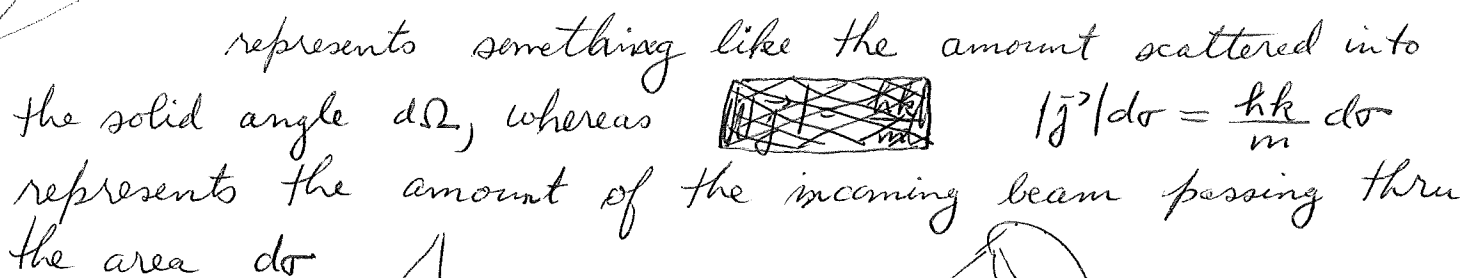 represents something like the amount scattered into
the solid angle dΩ, whereas |j⃗|dσ = ħk/m dσ
represents the amount of the incoming beam passing thru
the area dσ